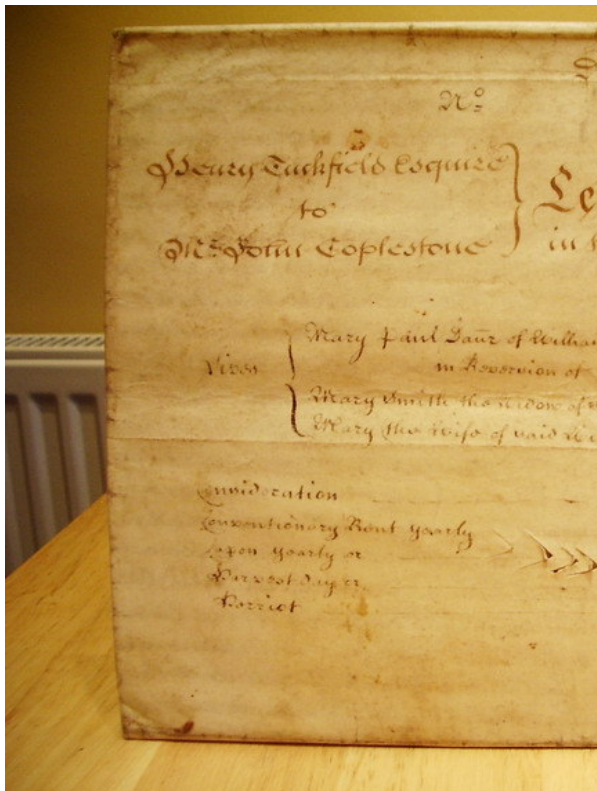 No:
Henry Tuckfield Esquire
to
Mr John Coplestone
Le
in
Lives
Mary Paul Daur of Willia
in Reversion of
Mary Smith the Widow of
Mary the Wife of said Wi
Consideration
Conventionary Rent yearly
Capon yearly or
Harvest day or
Herriot